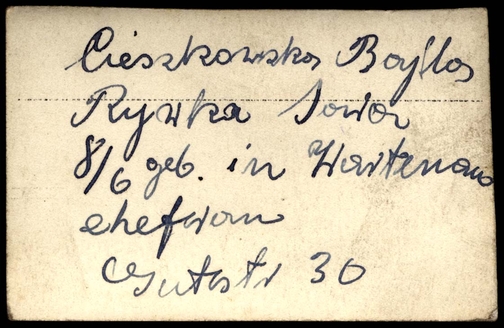 Cieszkowska Bajla
Rywka Sowa
8/6 geb. in Wartenau
ehefrau
Gutestr 30